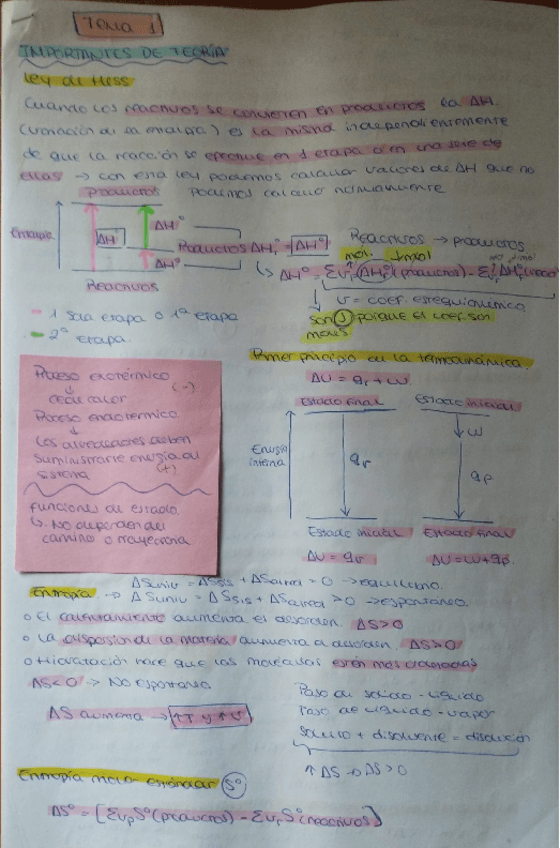 Tema 1
IMPORTANTES DE TEORÍA
Ley de Hess
Cuando los reactivos se convierten en productos la ΔH.
(variación de en entalpía) es la misma independientemente
de que la reacción se efectue en 1 etapa o en una serie de
ellas → con esta ley podemos calcular valores de ΔH que no
podemos calcular normalmente
Productos
Entalpía
ΔH°
ΔH°
Productos ΔHr° = ΔH°
ΔH°
Reactivos
Reactivos → productos
mol. J/mol
↳ ΔH° = Σνp ΔHf°(productos) - Σνr ΔHf°
ν = coef. estequiometrico
son J porque el coef son
moles
1 sola etapa o 1ª etapa
2ª etapa.
Primer principio de la termodinámica.
ΔU = q + w
Proceso exotérmico
(-)
cede calor
Proceso endotérmico
Los alrededores deben
suministrarle energía al
sistema
(+)
Funciones de estado.
↳ No dependen del
camino o trayectoria
Estado final
Estado inicial
Energía
interna
qv
w
qp
Estado inicial
Estado final
ΔU = qv
ΔU = w + qp.
ΔSuniv = ΔSsis + ΔSalred = 0 → equilibrio.
Entropía → ΔSuniv = ΔSsis + ΔSalred > 0 → espontáneo.
o El calentamiento aumenta el desorden. ΔS>0
o La dispersión de la materia aumenta el desorden. ΔS>0
o Hidratación hace que las moléculas estén más ordenadas
ΔS<0 → No espontáneo
Paso de sólido - líquido
Paso de líquido - vapor
Soluto + disolvente = disolución
ΔS aumenta → ↑T y ↑V
↑ΔS → ΔS>0
Entropía molar estándar S°
ΔS° = [ΣνpS°(productos) - ΣνrS°(reactivos)]